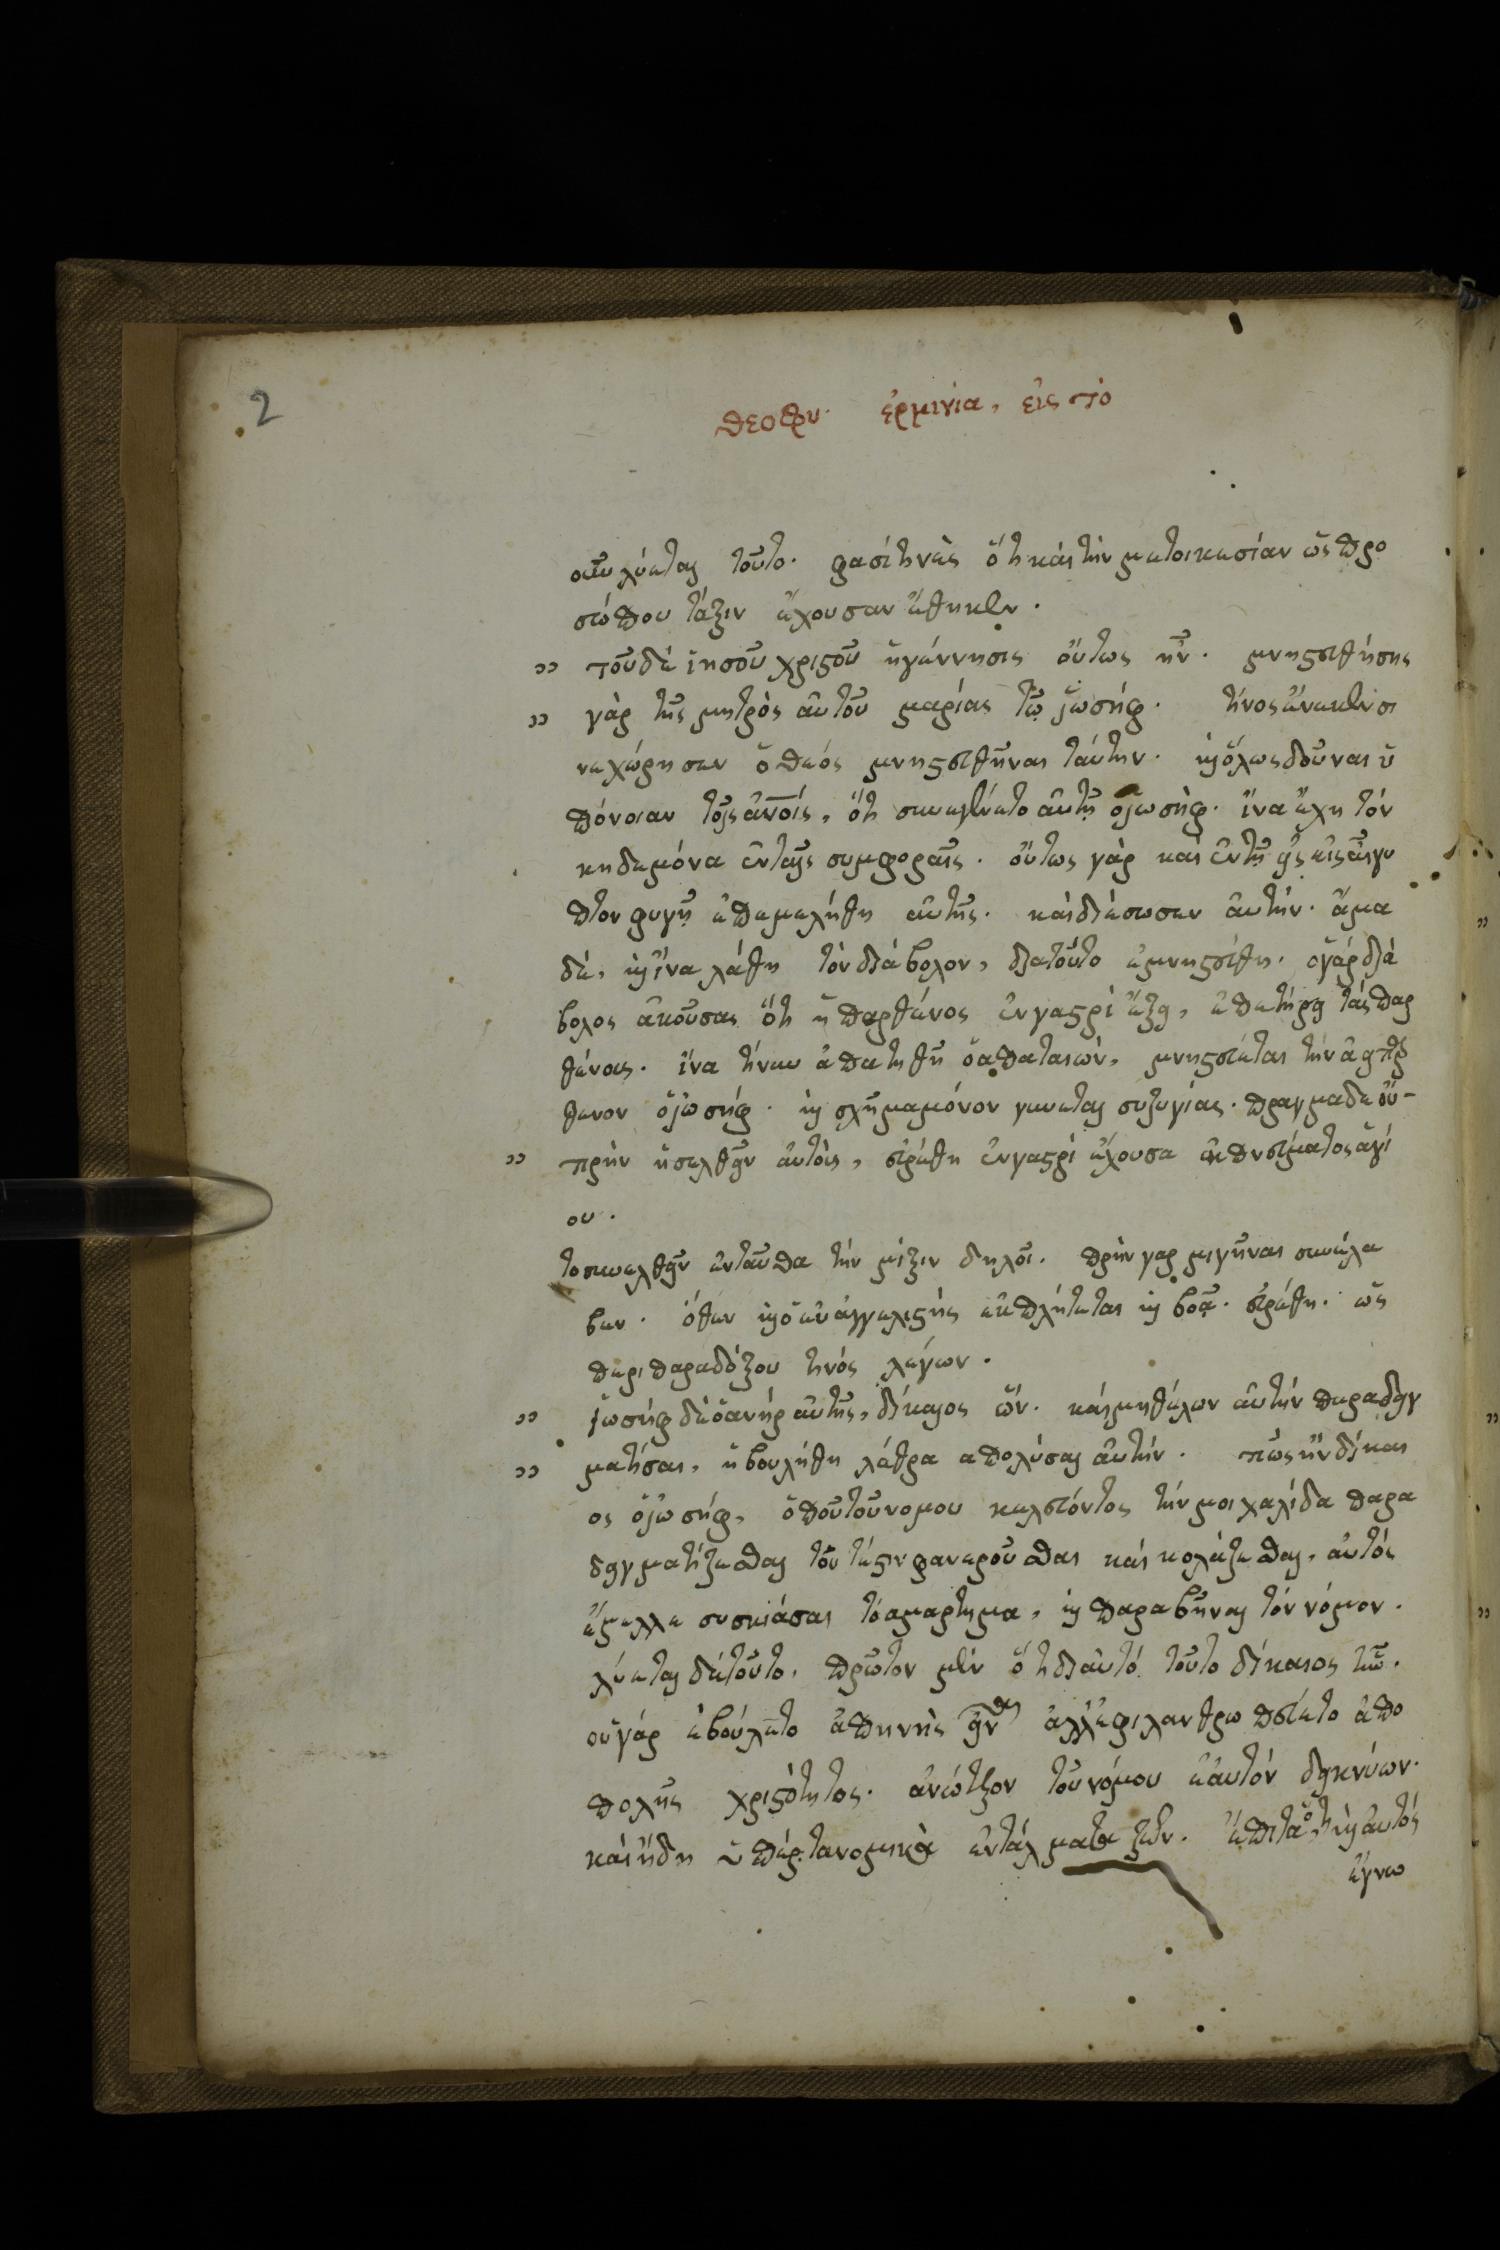 2
θεοφυ. ἑρμινία, εἰς τὸ
οὖν λύεται τοῦτο. φασὶ τινὲς ὅτι καὶ τὴν μετοικεσίαν ὡς προ
σώπου τάξιν ἔχουσαν ἔθηκεν.
" τοῦ δὲ ἰησοῦ χριστοῦ ἡ γέννησις οὕτως ἦν. μνηστευθήσης
" γὰρ τῆς μητρὸς αὐτοῦ μαρίας τῷ ἰωσήφ. τίνος ἕνεκεν σι
νεχώρησεν ὁ θεός μνηστευθῆναι ταύτην. κὶ ὅλως δοῦναι ὑ
πόνοιαν τοῖς ἀνοίς, ὅτι συνεγένετο αὐτῇ ὁ ἰωσήφ. ἵνα ἔχη τόν
κηδεμόνα ἐν ταῖς συμφοραῖς. οὕτως γὰρ καὶ ἐν τῇ εἰς αἴγυ
πτον φυγῇ ἐπεμελήθη αὐτῆς. καὶ διέσωσεν αὐτήν. ἅμα
δέ, κὶ ἵνα λάθη τὸν διάβολον, διατοῦτο ἐμνηστεύθη. ὁ γάρ διά
βολος ἀκούσας ὅτι ἡ παρθένος ἐν γαστρὶ ἕξει, ἐπετήρει τὰς παρ
θένους. ἵνα τίνυν ἀπατηθῇ ὁ ἀπαταιών, μνηστεύεται τὴν ἀειπαρ
θενον ὁ ἰωσήφ. κὶ σχῆμα μόνον γίνεται συζυγίας. πραγμα δε οὐ-
" πρὶν ἢ συνελθεῖν αὐτούς, εὑρέθη ἐν γαστρὶ ἔχουσα ἐκ πνεύματος ἁγί
ου.
το συνελθεῖν ἐνταῦθα τὴν μίξιν δηλοῖ. πρὶν γαρ μιγῆναι συνέλα
βεν. ὅθεν κὶ ὁ εὐαγγελιστὴς ἐκπλήτεται κὶ βοᾷ. εὑρέθη. ὡς
περι παραδόξου τινός λέγων.
" ἰωσὴφ δὲ ὁ ἀνήρ αὐτῆς, δίκαιος ὤν. καὶ μὴ θέλων αὐτήν παραδειγ
" ματίσαι, ἠβουλήθη λάθρα απολύσαι αὐτήν. πῶς ἦν δίκαι
ος ὁ ἰωσήφ, ὁποῦ τοῦ νομου κελεύοντος τὴν μοιχαλίδα παρα
δειγματίζεσθαι τοῦτέστιν φανεροῦσθαι καὶ κολάζεσθαι, αὐτός
ἔμελλε συσκιάσαι τὸ αμαρτημα, κὶ παραβῆναι τὸν νόμον.
λύεται δὲ τοῦτο. πρῶτον μὲν ὅτι δι αὐτό τοῦτο δίκαιος ἦν.
οὐ γάρ ἐβούλετο ἀπηνὴς εἶναι ἀλλ ἐφιλανθρωπεύετο ἀπο
πολῆς χριστότητος. ἀνώτερον τοῦ νόμου ἑαυτόν δεικνύων.
καὶ ἤδη ὑπὲρ τα νομικὰ ἐντάλματα ζῶν. ἔπειτα ὅτι κὶ αὐτός
ἔγνω